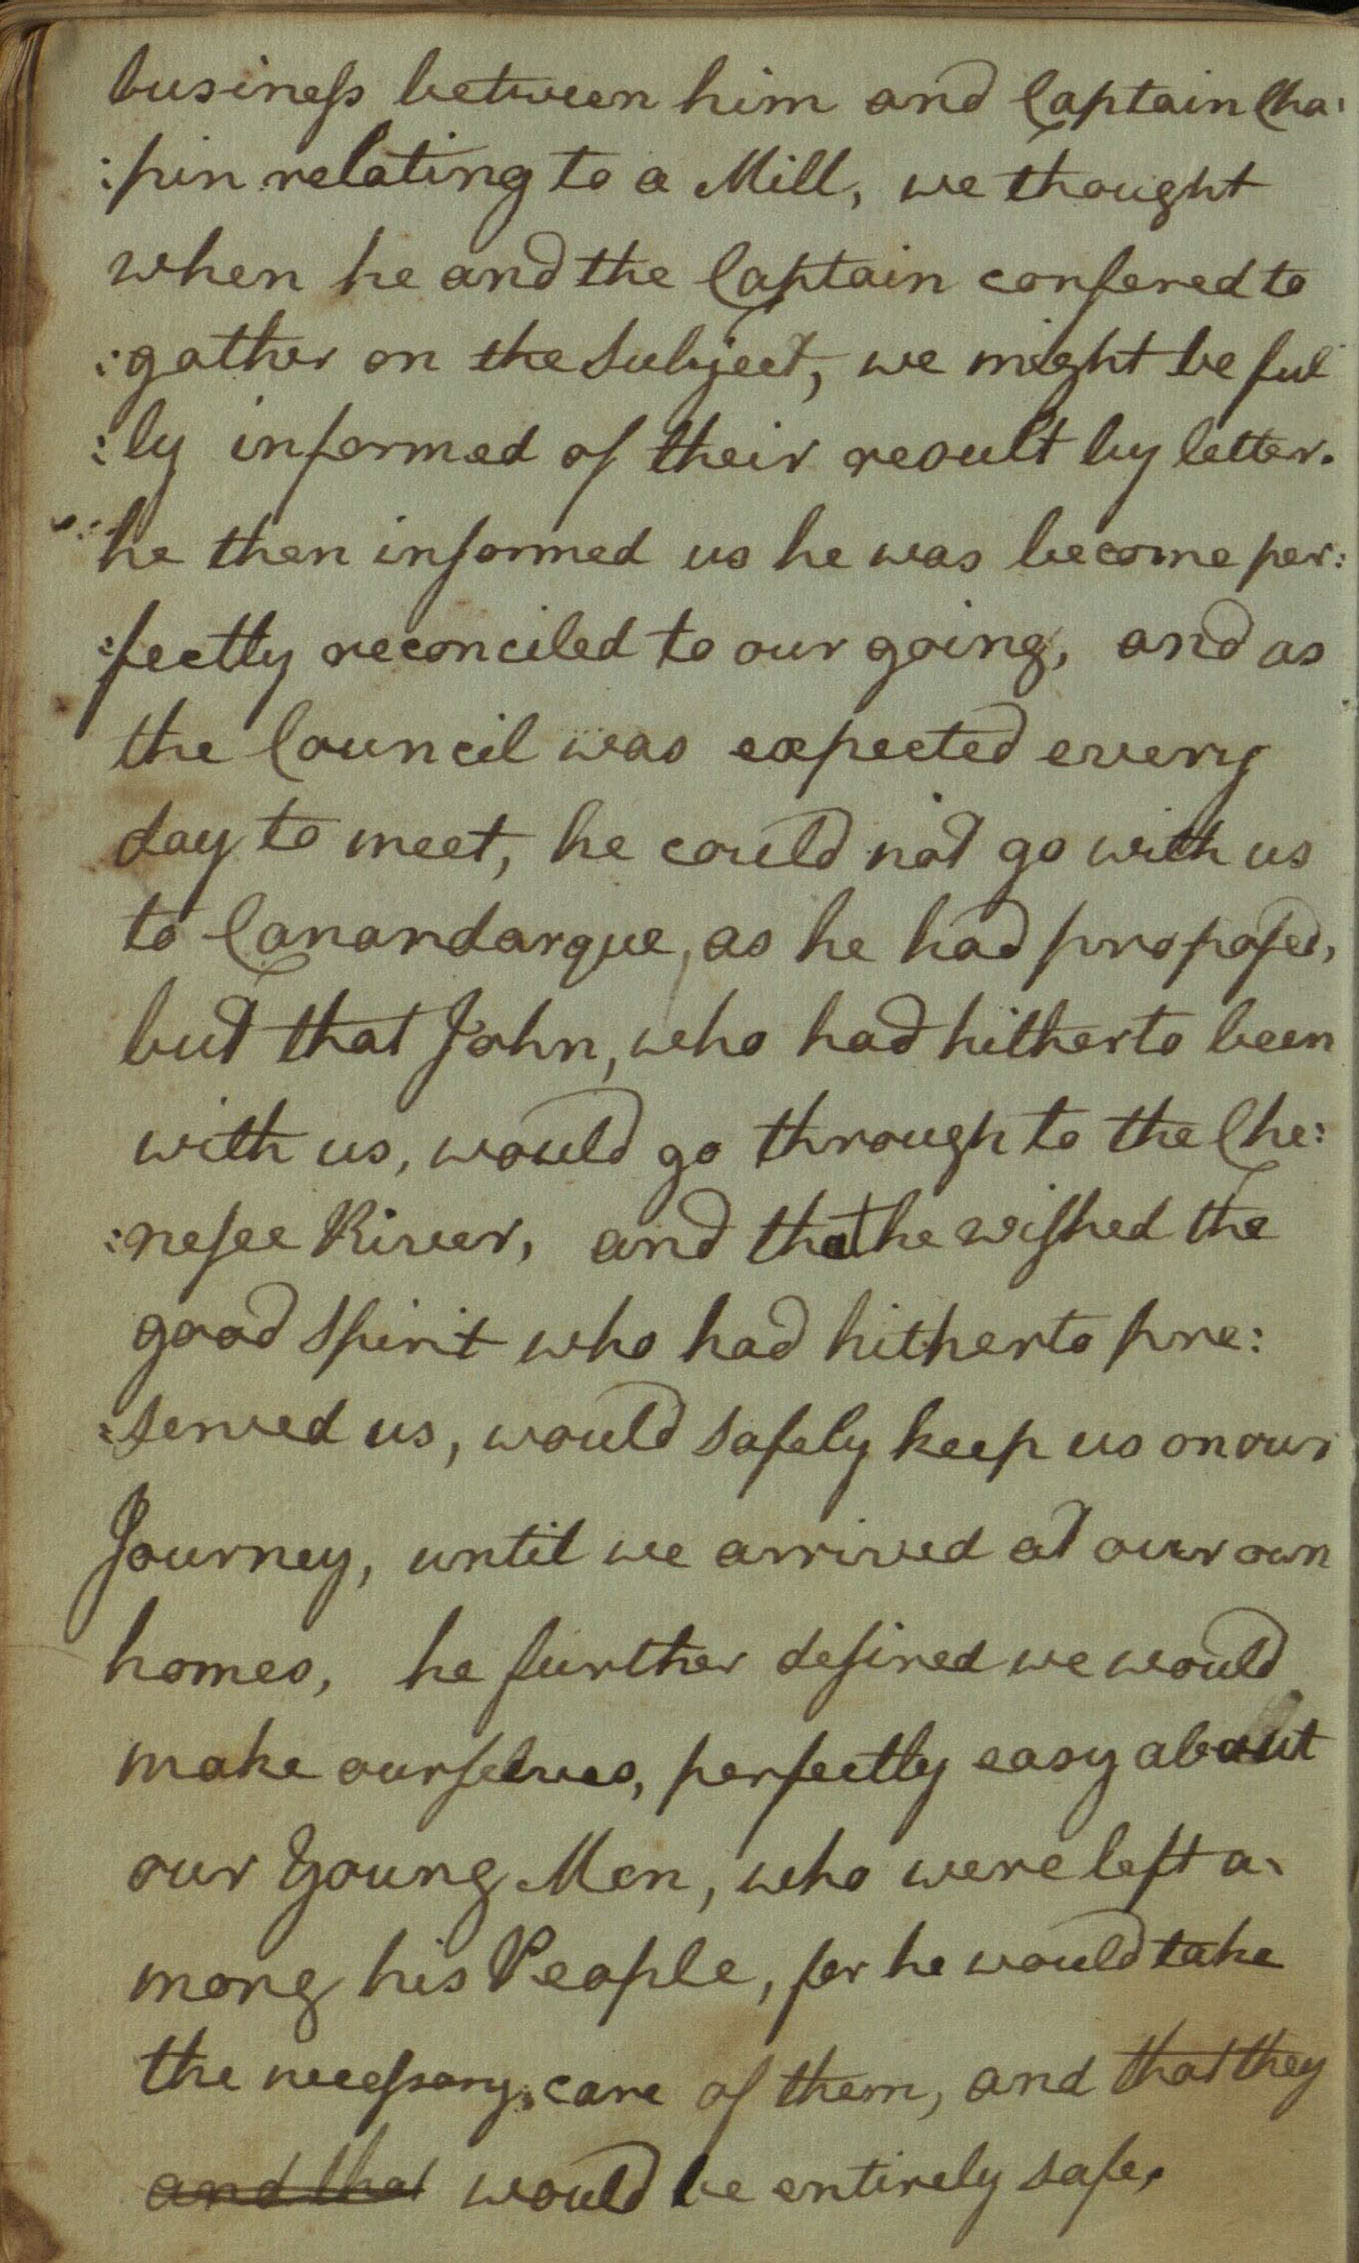 business between him and Captain Cha:
:pin relating to a Mill, we thought
when he and the Captain confered to
:gather on the Subject, we might be ful
:ly informed of their result by letter.
he then informed us he was become per:
:fectly reconciled to our going, and as
the Council was expected every
day to meet, he could not go with us
to Canandarque, as he had proposed,
but that John, who had hitherto been
with us, would go through to the Che:
:nesee River, and that he wished the
good Spirit who had hitherto pre:
:served us, would safely keep us on our
Journey, until we arrived at our own
homes, he further desired we would
make ourselves, perfectly easy about
our Young Men, who were left a-
mong his People, for he would take
the necessary care of them, and that they
and that would be entirely safe,